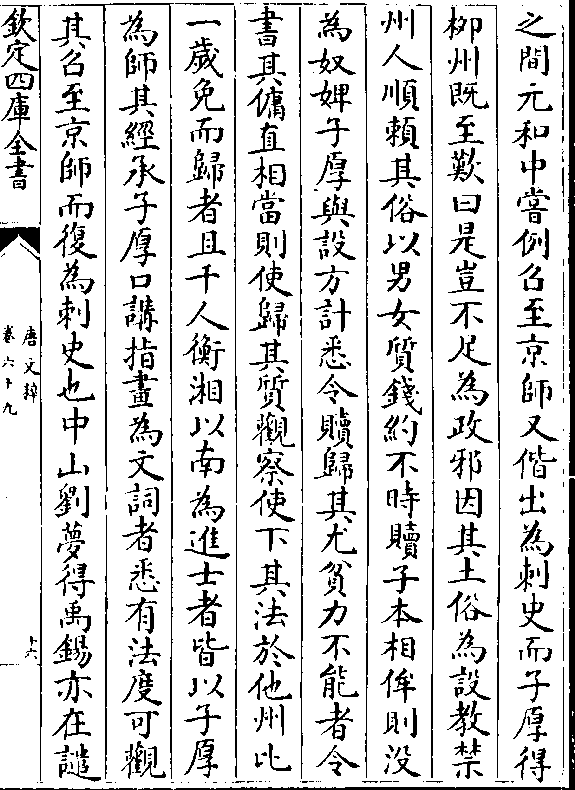 之間元和中嘗例召至京師又偕出為刺史而子厚得
柳州既至歎曰是豈不足為政邪因其土俗為設教禁
州人順頼其俗以男女質錢約不時贖子本相侔則没
為奴婢子厚與設方計悉令贖歸其尤貧力不能者令
書其傭直相當則使歸其質觀察使下其法於他州比
一歲免而歸者且千人衡湘以南為進士者皆以子厚
為師其經承子厚口講指畫為文詞者悉有法度可觀
其召至京師而復為刺史也中山劉夢得禹錫亦在譴
欽定四庫全書
唐文粹
卷六十九
十六